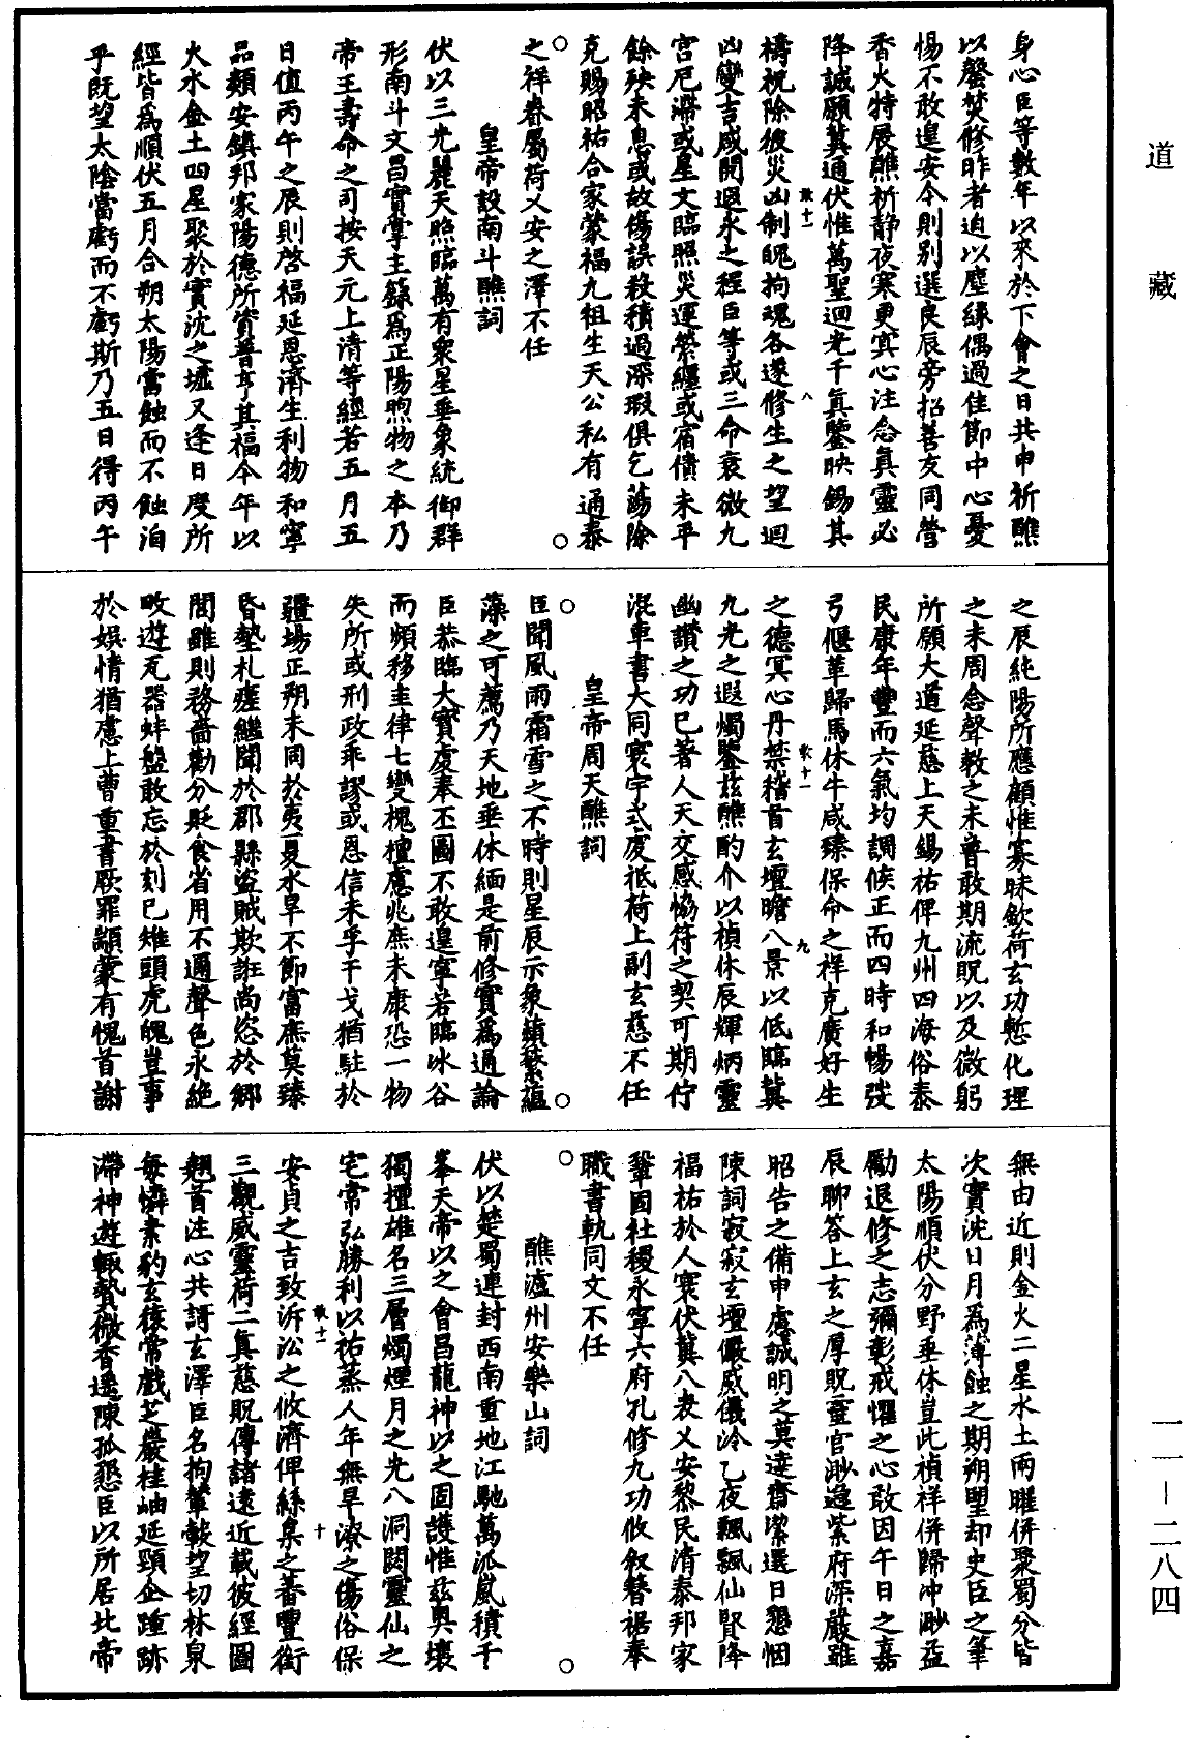 道藏
一一—二八四
身心臣等數年以來於下會之日共申祈醮
以罄焚修昨者迫以塵緣偶過佳節中心憂
惕不敢遑安今則別選良辰旁招善友同營
香火特展醮祈靜夜寒更冥心注念真靈必
降誠願冀通伏惟萬聖迴光千真鑒映錫其
禱祝除彼災凶制魄拘魂各遂修生之望迴
凶變吉咸開遐永之程臣等或三命衰微九
宮厄滯或星文臨照災運縈纏或宿債未平
餘殃未息或故傷誤殺積過深瑕俱乞蕩除
克賜昭祐合家蒙福九祖生天公私有通泰
之祥眷屬荷乂安之澤不任
皇帝設南斗醮詞
伏以三光麗天照臨萬有眾星垂象統御群
形南斗文昌實掌主籙為正陽煦物之本乃
帝王壽命之司按天元上清等經若五月五
日值丙午之辰則啓福延恩濟生利物和寧
品類安鎮邦家陽德所資普亨其福今年以
火水金土四星聚於實沈之墟又逢日度所
經皆為順伏五月合朔太陽當蝕而不蝕洎
乎既望太陰當虧而不虧斯乃五日得丙午
之辰純陽所應顧惟寡昧欽荷玄功慙化理
之未周念聲教之未普敢期流貺以及微躬
所願大道延慈上天錫祐俾九州四海俗泰
民康年豐而六氣均調候正而四時和暢弢
弓偃革歸馬休牛咸臻保命之祥克廣好生
之德冥心丹禁稽首玄壇瞻八景以低臨冀
九光之遐燭鑒茲醮酌介以禎休辰輝炳靈
幽讚之功巳著人天交感恊符之契可期佇
混車書大同寰宇式虔祗荷上副玄慈不任
皇帝周天醮詞
臣聞風雨霜雪之不時則星辰示象蘋蘩蘊
藻之可薦乃天地垂休緬是前修實為通論
臣恭臨大寶虔奉丕圖不敢遑寧若臨冰谷
而頻移圭律七變槐檀慮兆庶未康恐一物
失所或刑政乖謬或恩信未孚干戈猶駐於
疆場正朔未同於夷夏水旱不節富庶莫臻
昏墊札瘥繼聞於郡縣盜賊欺誑尚恣於鄉
閭雖則務嗇勸分貶食省用不邇聲色永絕
畋遊瓦器蚌盤敢忘於刻巳雉頭虎魄豈事
於娛情猶慮上曹重書厥罪顓蒙有愧首謝
無由近則金火二星水土兩曜併聚蜀分皆
次實沈日月為薄蝕之期朔朢却史臣之筆
太陽順伏分野垂休豈此禎祥併歸沖眇益
勵退修之志彌彰戒懼之心敢因午日之嘉
辰聊答上玄之厚貺靈官渺邈紫府深嚴雖
昭告之備申慮誠明之莫達齋潔選日懇悃
陳詞寂寂玄壇儼威儀泠乙夜飄飄仙賢降
福祐於人寰伏冀八表乂安黎民清泰邦家
鞏固社稷永寧六府孔修九功攸敘簪裾奉
職書軌同文不任
醮瀘州安樂山詞
伏以楚蜀連封西南重地江馳萬派嵐積千
峯天帝以之會昌龍神以之固護惟茲奧壤
獨擅雄名三層燭煙月之光八洞閟靈仙之
宅常弘勝利以祐蒸人年無旱潦之傷俗保
安貞之吉致泝沿之攸濟俾絲枲之蕃豐銜
三觀威靈荷二真慈貺傳諸遠近載彼經圖
翹首注心共謌玄澤臣名拘輦轂望切林泉
每憐素豹玄猿常戲芝巖桂岫延頸企踵跡
滯神遊輒贄微香遙陳孤懇臣以所居北帝